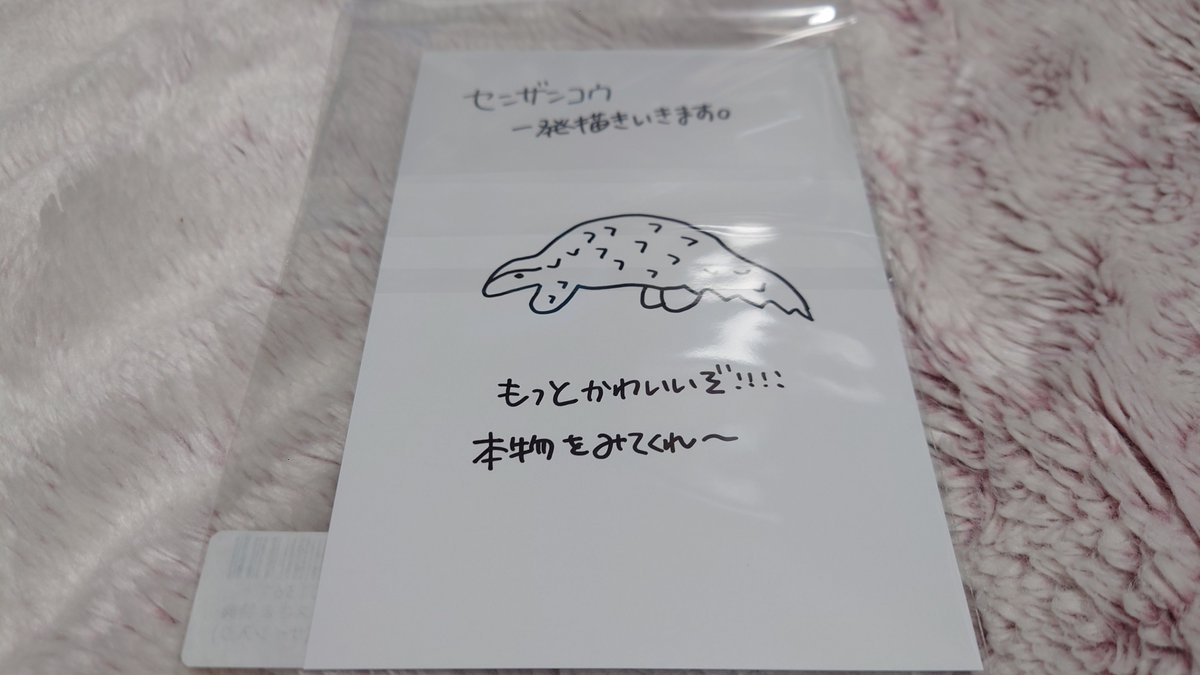 センザンコウ
一発描きいきます。
もっとかわいいぞ!!!!
本物をみてくれ〜